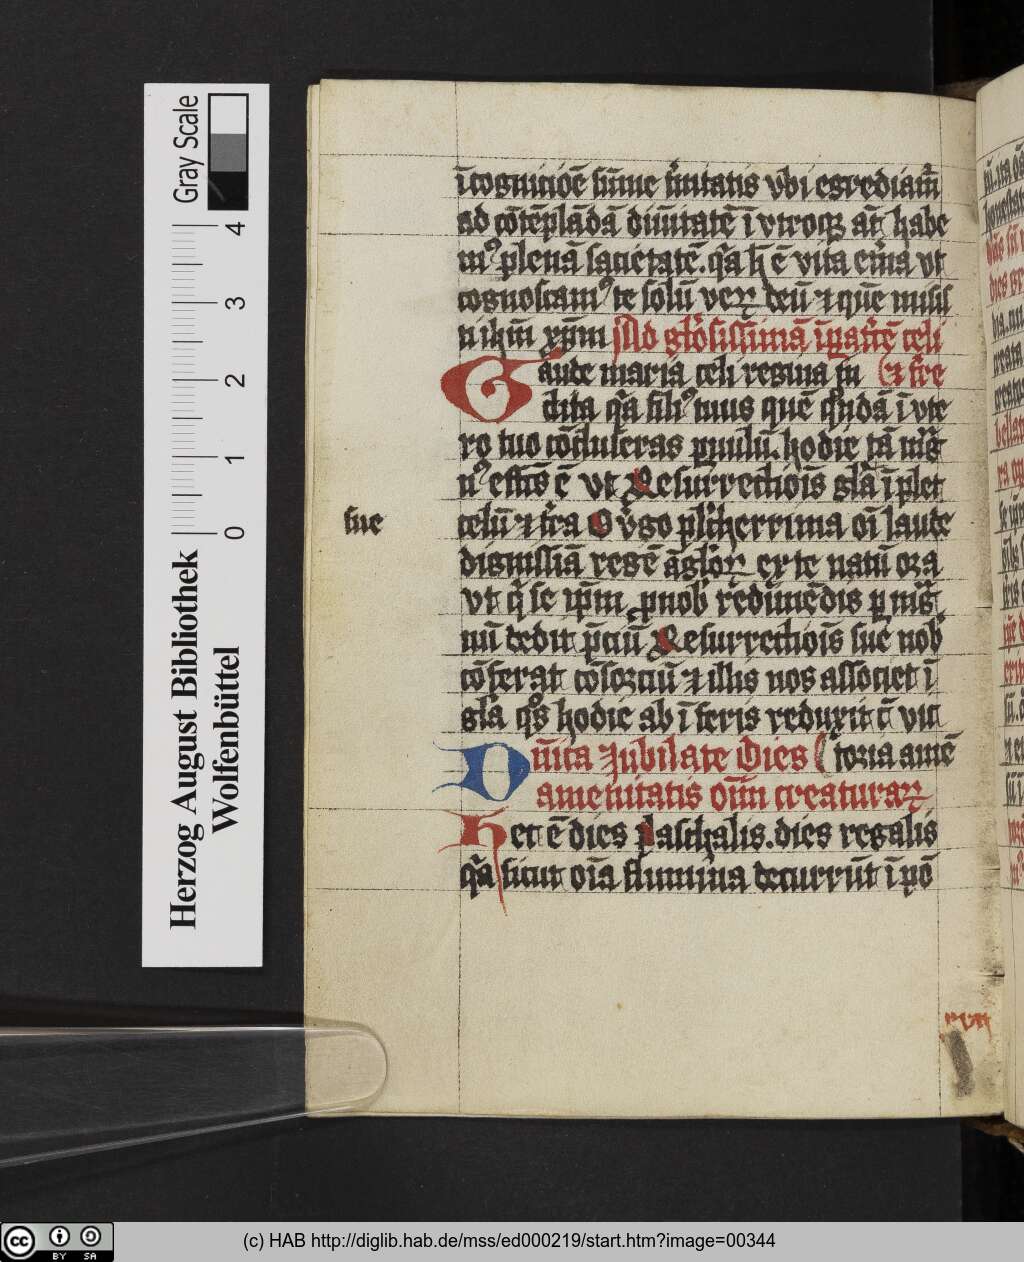 Gray Scale
4
3
2
1
0
Herzog August Bibliothek
Wolfenbüttel
ī cognicōē sūme t'nitatis vbi egrediam̄
ad cōtēplādā diuītatē ī vtroq; at̄ habe
m⁹ plenā sacietatē. q̄a h̄ ē vita et'na vt
cognoscam⁹ te solū veꝝ deū ⁊ quē misis
ti ihm̄ xp̄m Ad gl'osissimā īpat'cē celi
Gaude maria celi regina ⁊ t're
dita q̄a fili⁹ tuus quē q̄ndā ī vte
ro tuo cōcluseras puulū. hodie tā mḡ
n⁹ eff'us ē vt Resurrectiois gl'a ī plet
sue
celū ⁊ t'ra O v'go plcherrima oī laude
dignissiā regē āgl'oꝝ ex te natū ora
vt q' se ip̄m pro nob' redimēdis p mg̅
nū dedit p̄ciū Resurrectiois sue nob'
cōferat cōsorciū ⁊ illis nos associet ī
gl'a q̄s hodie ab īferis reduxit c̄ vic
Dn̄ica Jubilate Dies toria amē
amenitatis oīm creaturaꝝ
Hec ē dies paschalis. dies regalis
q̄a sicut oīa flumina decurrūt ī pō
(c) HAB http://diglib.hab.de/mss/ed000219/start.htm?image=00344
cc BY SA